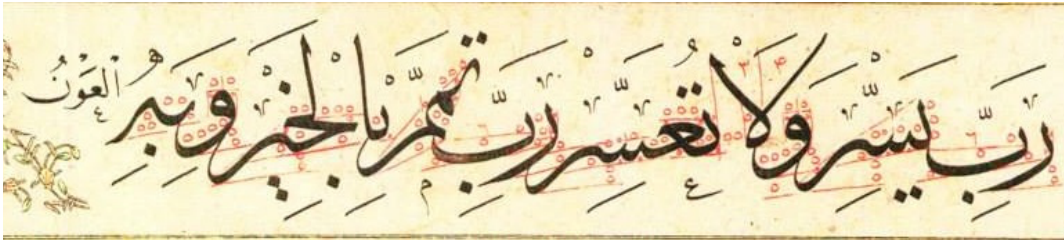 رَبِّ يَسِّرْ وَلَا تُعَسِّرْ رَبِّ تَمِّمْ بِالْخَيْرِ وَبِهِ الْعَوْنُ